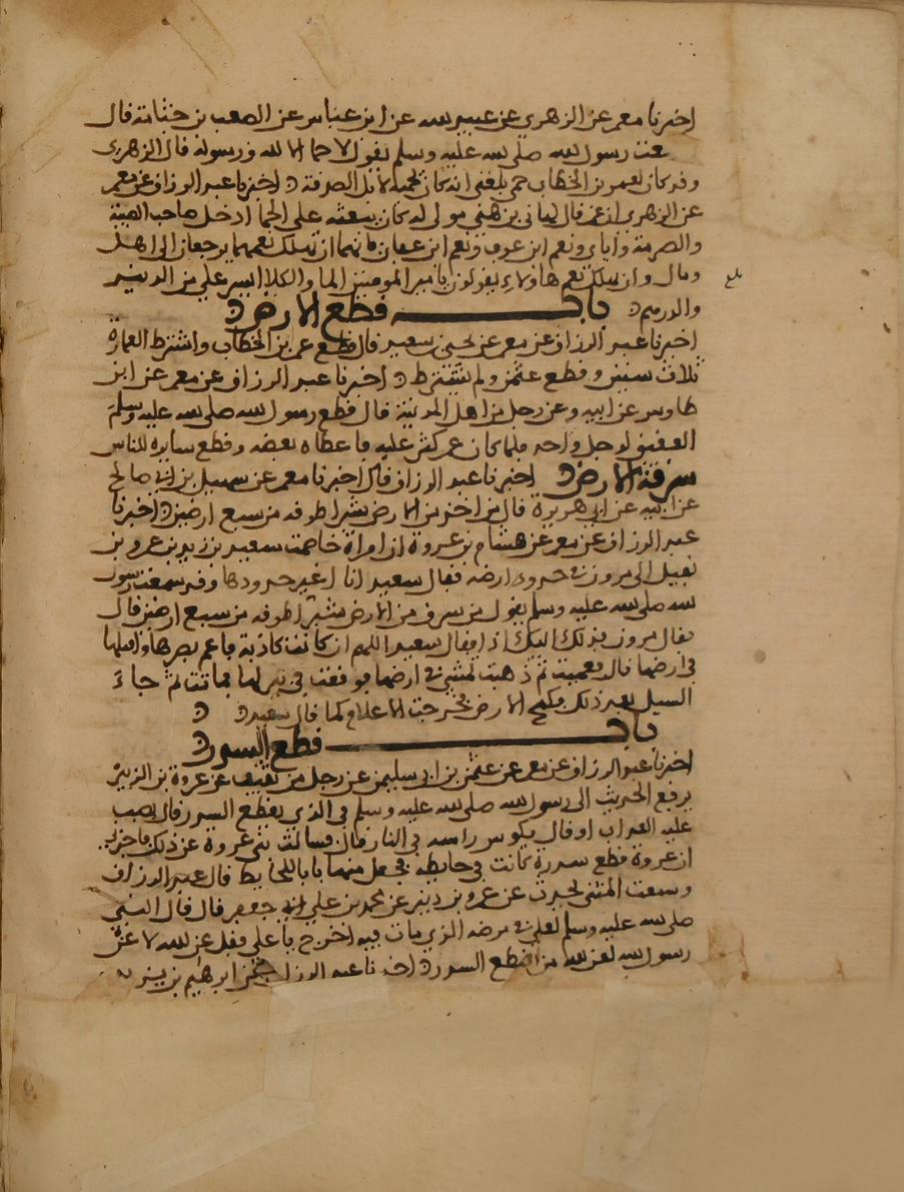 اخبرنا معمر عن الزهري عن عبيد الله عن ابن عباس عن الصعب بن جثامة قال
سمعت رسول الله صلى الله عليه وسلم يقول لا حما الا لله ورسوله قال الزهري
وقد كان لعمر بن الخطاب حمى بلغني انه كان يحميه لابل الصدقة اخبرنا عبد الرزاق عن معمر
عن الزهري ان عمر قال لهاني بن هني مولى له كان يبعثه على الحما ادخل صاحب الغنيمة
والصريمة واياي ونعم ابن عوف ونعم ابن عفان فانهما ان تهلك نعمهما يرجعان الى اهل
ومال وان تهلك نعم هاولاء يقولون يا امير المومنين الما والكلا ايسر علي من الدنانير
بلغ
والدرهم باب قطع الارض
اخبرنا عبد الرزاق عن معمر عن يحيى بن سعيد قال قطع عمر بن الخطاب واشترط العمارة
ثلاث سنين وقطع عثمن ولم يشترط اخبرنا عبد الرزاق عن معمر عن ابن
طاوس عن ابيه وعن رجل من اهل المدينة قال قطع رسول الله صلى الله عليه وسلم
العقيق لرجل واحد فلما كان عمر كثر عليه فاعطاه بعضه وقطع سايره للناس
سرقة الارض اخبرنا عبد الرزاق قال اخبرنا معمر عن سهيل بن ابي صالح
عن ابيه عن ابي هريرة قال من اخذ من الارض شبرا طوقه من سبع ارضين اخبرنا
عبد الرزاق عن معمر عن هشام بن عروة ان امراة خاصمت سعيد بن زيد بن عمرو بن
نفيل الى مروان في حدود ارضه فقال سعيد انا اغير حدودها وقد سمعت رسول
الله صلى الله عليه وسلم يقول من سرق من الارض شبرا طوقه من سبع ارضين قال
فقال مروان فذلك اليك اذا فقال سعيد اللهم ان كانت كاذبة فاعم بصرها واقتلها
في ارضها قال فعميت ثم ذهبت تمشي في ارضها فوقعت في بير لها فماتت ثم جاء
السيل بعد ذلك فكسح الارض فخرجت الاعلام كما قال سعيد
باب قطع السدر
اخبرنا عبد الرزاق عن معمر عن عثمن بن ابي سليمن عن رجل من ثقيف عن عروة بن الزبير
يرفع الحديث الى رسول الله صلى الله عليه وسلم في الذي يقطع السدر قال يصب
عليه العذاب او قال يكوس راسه في النار قال فسالت بني عروة عن ذلك فاخبروني
ان عروة قطع سدرة كانت في حايطه فجعل منها بابا للحايط قال عبد الرزاق
وسمعت المثنى يحدث عن عمرو بن دينر عن محمد بن علي ابي جعفر قال قال النبي
صلى الله عليه وسلم لعلي في مرضه الذي مات فيه اخرج يا علي فقل عن الله لا عن
رسول الله لعن الله من يقطع السدر اخبرنا عبد الرزاق عن ابرهيم بن يزيد